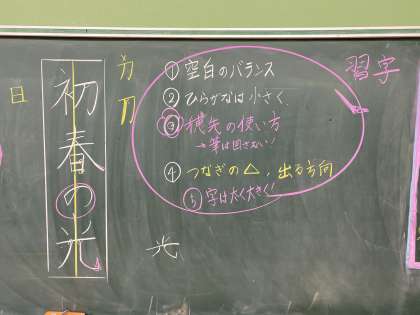 習字
① 空白のバランス
② ひらがなは小さく
③ 穂先の使い方
→筆は回さない!
④ つなぎの△, 出る方向
⑤ 字は太く大きく!
力
刀
初春の光
日
光